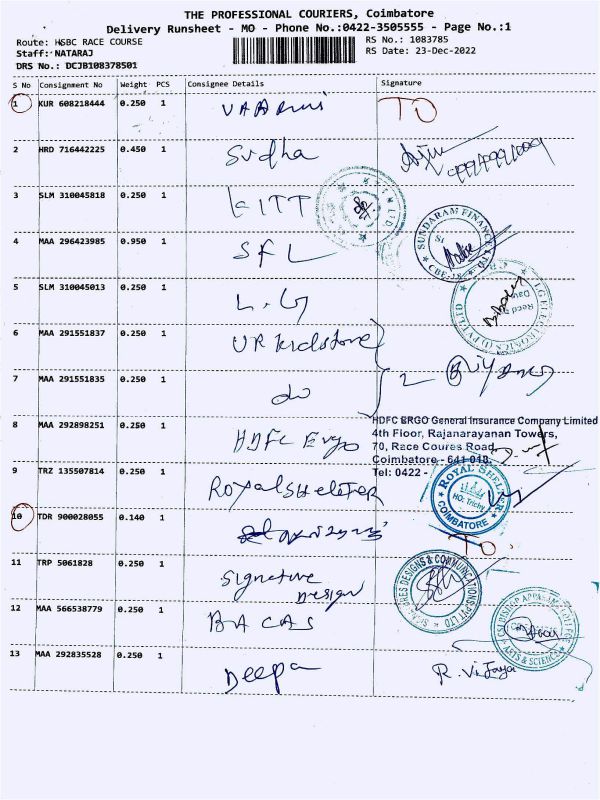 THE PROFESSIONAL COURIERS, Coimbatore
Delivery Runsheet - MO - Phone No.:0422-3505555 - Page No.:1
Route: HSBC RACE COURSE
RS No.: 1083785
Staff: NATARAJ
RS Date: 23-Dec-2022
DRS No.: DCJB108378501
S No Consignment No Weight PCS Consignee Details Signature
1 KUR 608218444 0.250 1 TO
2 HRD 716442225 0.450 1 Sudha
3 SLM 310045818 0.250 1 KITT
4 MAA 296423985 0.950 1 SFL SUNDARAM FINANCE LTD
5 SLM 310045013 0.250 1 L.G
6 MAA 291551837 0.250 1 UR
7 MAA 291551835 0.250 1 do 2
8 MAA 292898251 0.250 1 HDFC Ergo
HDFC ERGO General Insurance Company Limited
4th Floor, Rajanarayanan Towers,
70, Race Coures Road,
Coimbatore - 641 018.
Tel: 0422 -
9 TRZ 135507814 0.250 1 Royal SHelter ROYAL SHELTER HO: Trichy COIMBATORE
10 TDR 900028055 0.140 1 TO.
11 TRP 5061828 0.250 1 Signature Design
12 MAA 566538779 0.250 1 BACAS CSI BISHOP APPASAMY COLLEGE ARTS & SCIENCE
13 MAA 292835528 0.250 1 Deepa R. Vijaya